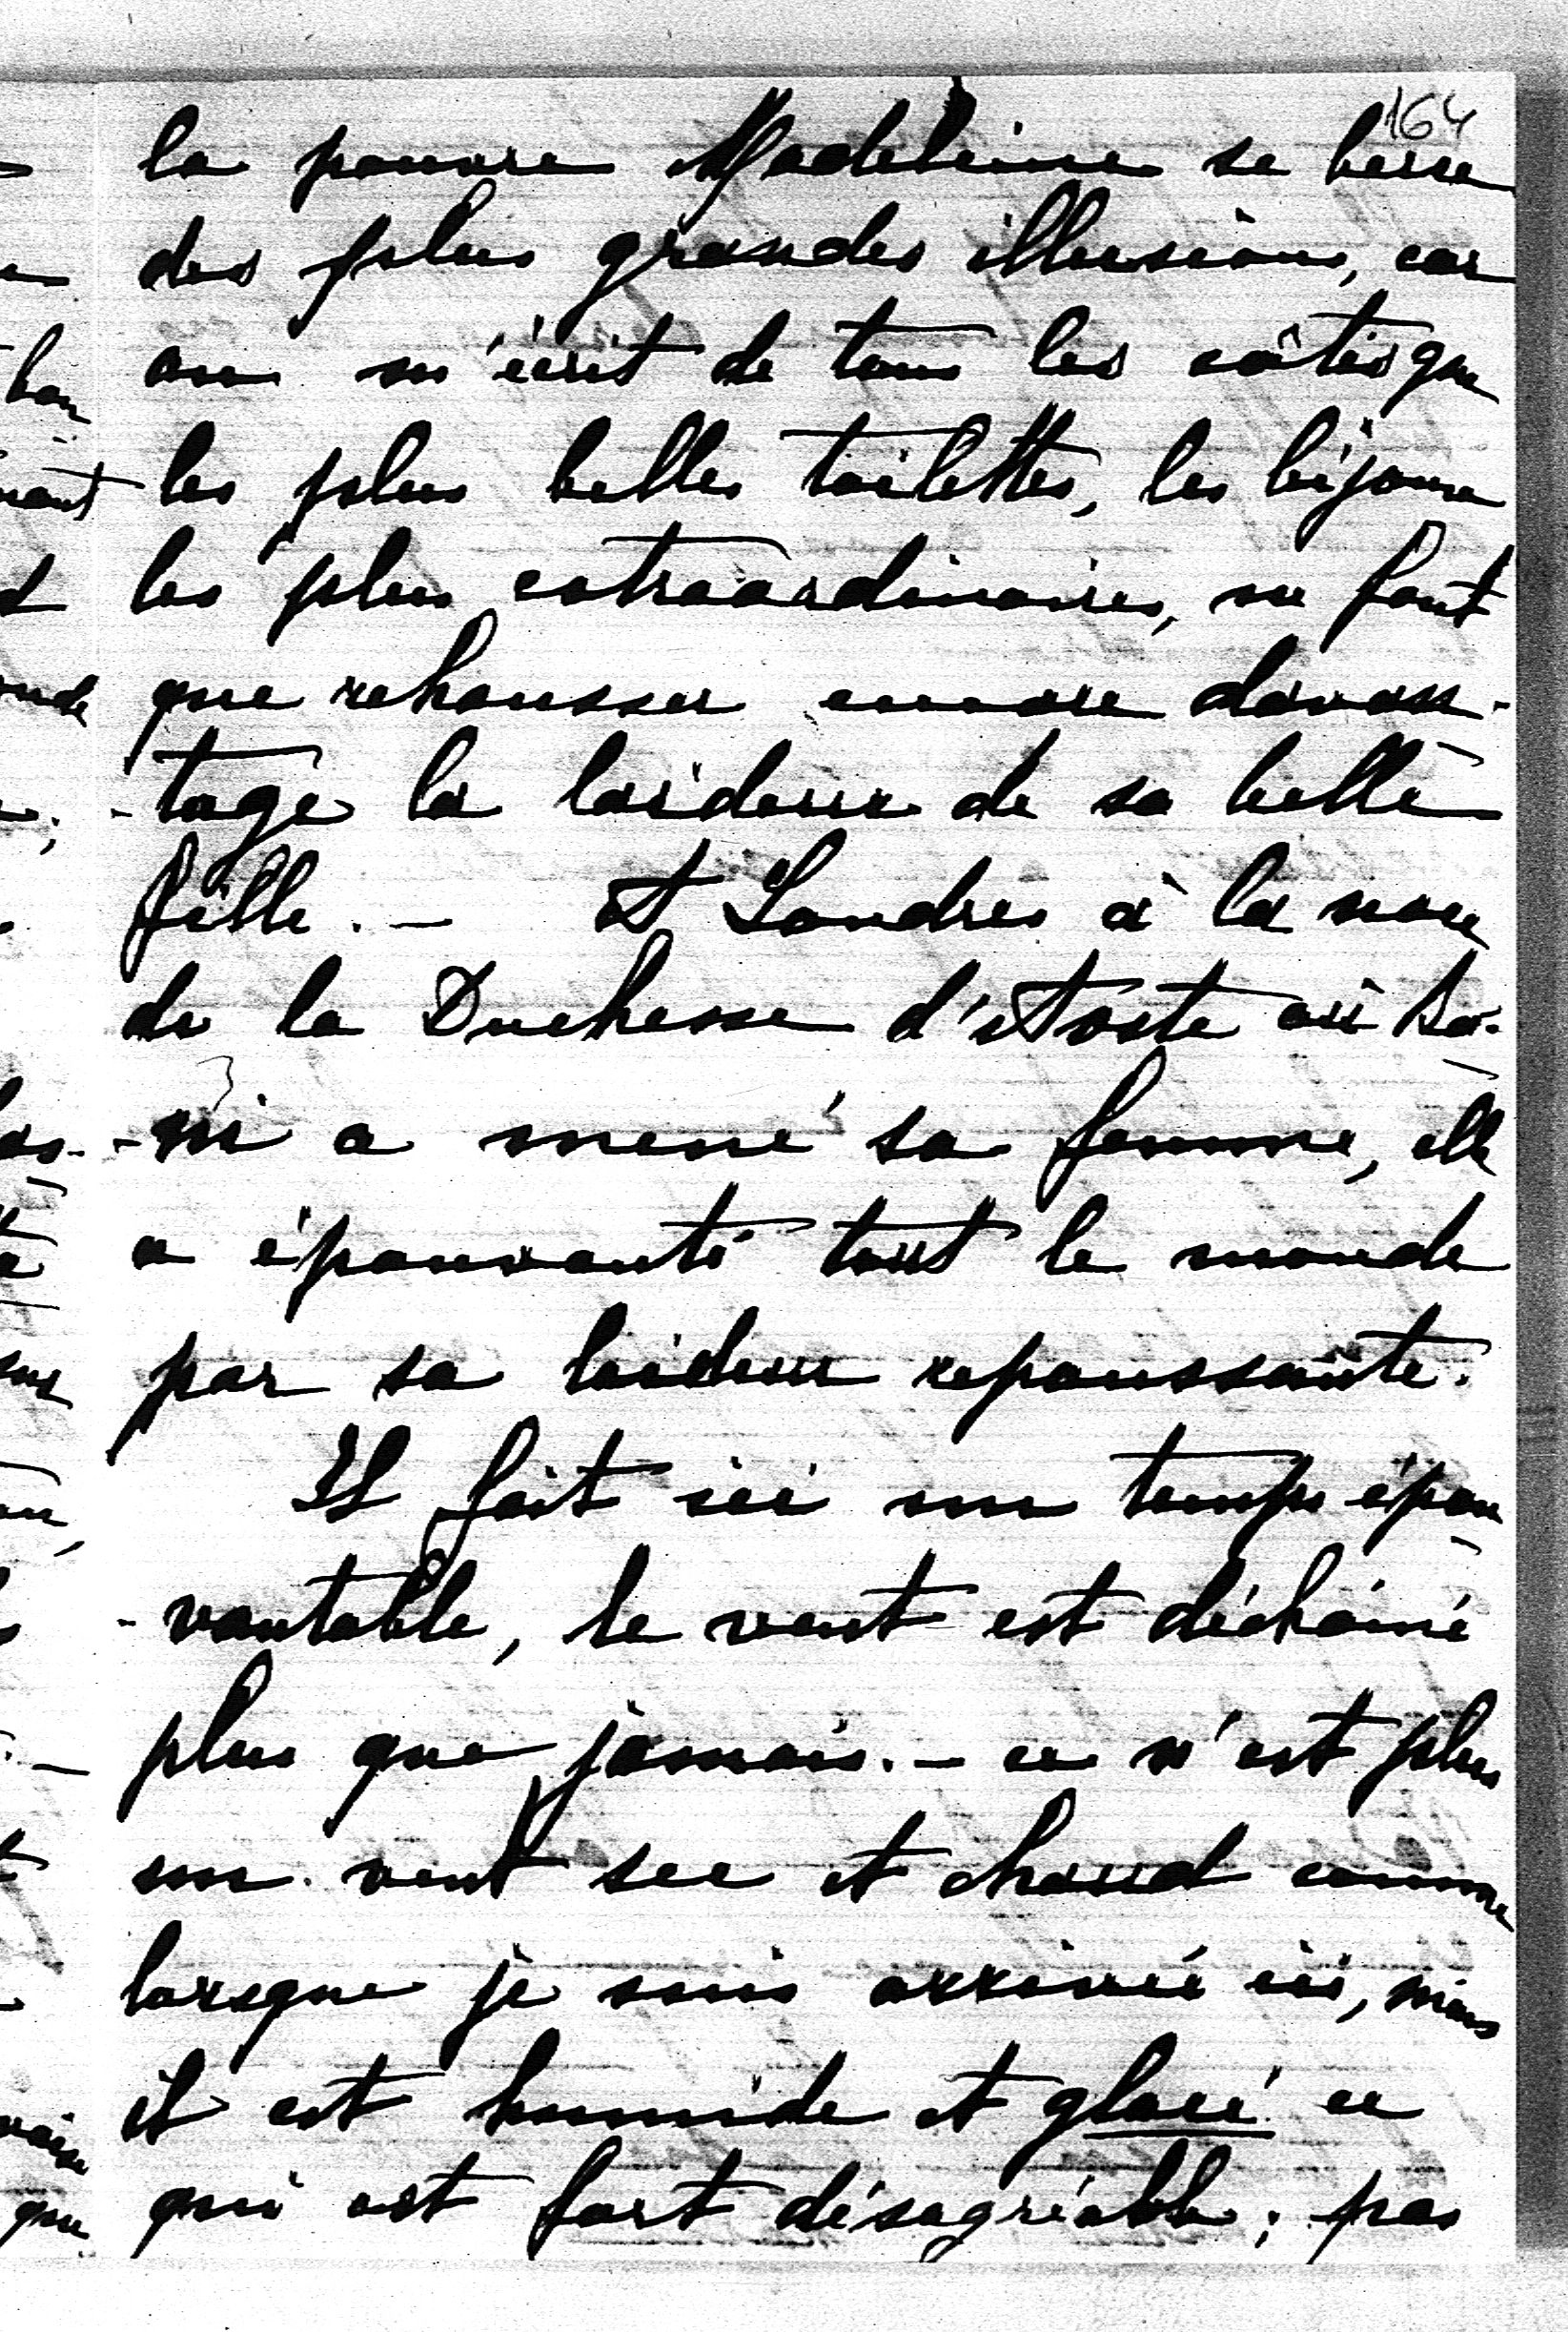 164
la pauvre Madeleine se berce
des plus grandes illusions, car
on m'écrit de tous les côtés que
les plus belles toilettes, les bijoux
les plus extraordinaires, ne font
que rehausser encore davan-
-tage la laideur de sa belle-
fille. – A Londres à la noce
de la Duchesse d'Aoste où
-ni a mené sa femme, elle
a épouvanté tout le monde
par sa laideur repoussante.
Il fait ici un temps épou-
-vantable, le vent est déchaîné
plus que jamais. – ce n'est plus
un vent sec et chaud comme
lorsque je suis arrivée ici, mais
il est humide et glacé ce
qui est fort désagréable; pas